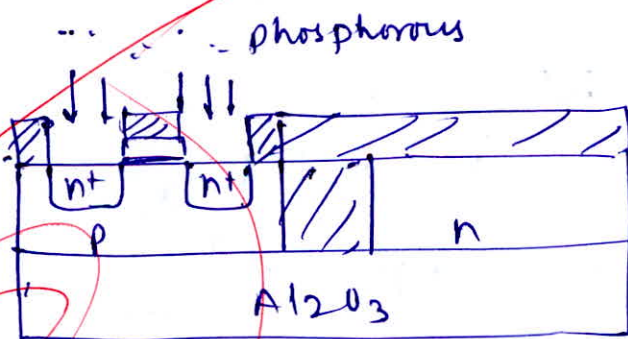 phosphorous
n+ n+
p n
Al2O3